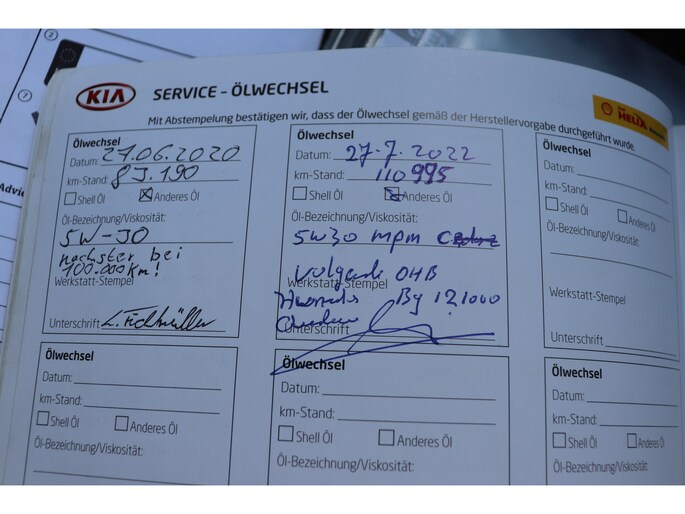 KIA SERVICE - ÖLWECHSEL
Mit Abstempelung bestätigen wir, dass der Ölwechsel gemäß der Herstellervorgabe durchgeführt wurde.
HELIX
Advic
Ölwechsel
Datum: 27.06.2020
km-Stand: 83.190
Shell Öl Anderes Öl
Öl-Bezeichnung/Viskosität:
5W-30
nächster bei
100.000 km!
Werkstatt-Stempel
Unterschrift
Ölwechsel
Datum: 27-7-2022
km-Stand: 110995
Shell Öl Anderes Öl
Öl-Bezeichnung/Viskosität:
5W30 mpm
Volgende OHB
Werkstatt-Stempel
By 121000
Unterschrift
Ölwechsel
Datum:
km-Stand:
Shell Öl Anderes Öl
Öl-Bezeichnung/Viskosität:
Werkstatt-Stempel
Unterschrift
Ölwechsel
Datum:
km-Stand:
Shell Öl Anderes Öl
Öl-Bezeichnung/Viskosität:
Ölwechsel
Datum:
km-Stand:
Shell Öl Anderes Öl
Öl-Bezeichnung/Viskosität:
Ölwechsel
Datum:
km-Stand:
Shell Öl Anderes
Öl-Bezeichnung/Viskosität: